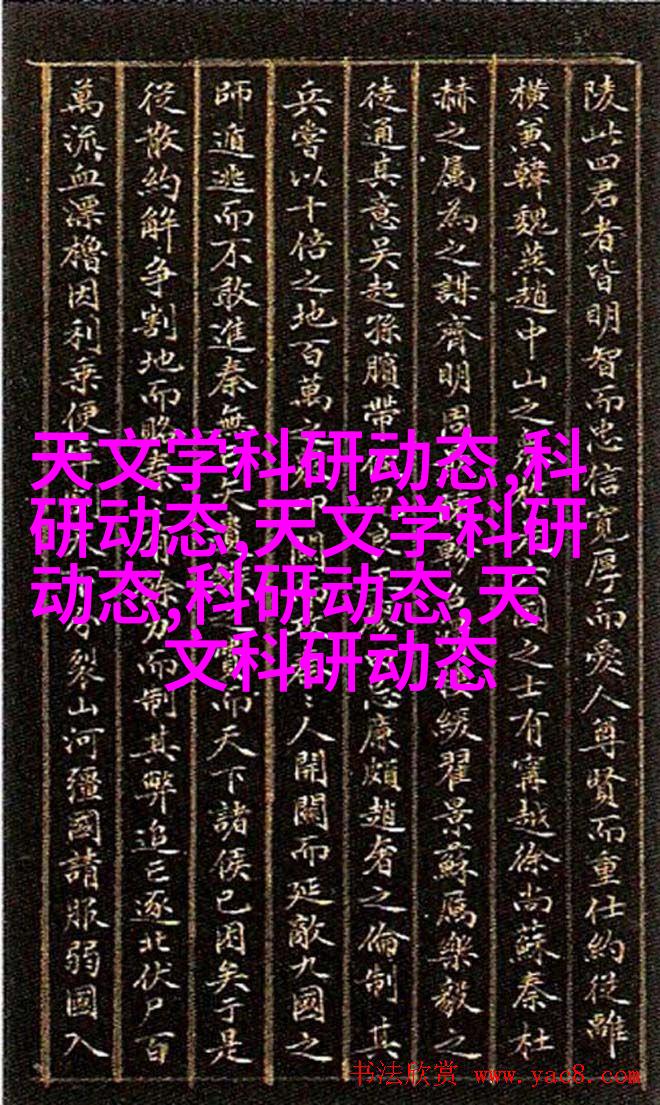 陵此四君者皆明智而忠信寬厚而愛人尊賢而重仕約從離
橫兼韓魏燕趙中山之六國之士有寗越徐尚蘇秦杜
赫之属為之謀齊明周緩翟景蘇厲樂毅之
徒通其意吳起孫臏帶忌廉頗趙奢之倫制其
兵嘗以十倍之地百萬之叩關人開關而延敵九國之
師遁逃而不敢進秦無亡矢遺之費而天下諸侯已困矣于是
從散約解爭割地而賂秦力而制其弊追亡逐北伏尸百
萬流血漂櫓因利乘便分裂山河彊國請服弱國入
天文学科研动态,科
研动态,天文学科研
动态,科研动态,天
文科研动态
书法欣赏 www.yac8.com